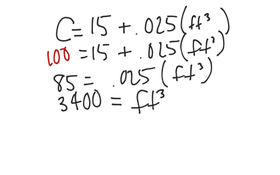 C = 15 + .025(ft³)
100 = 15 + .025(ft³)
85 = .025(ft³)
3400 = ft³